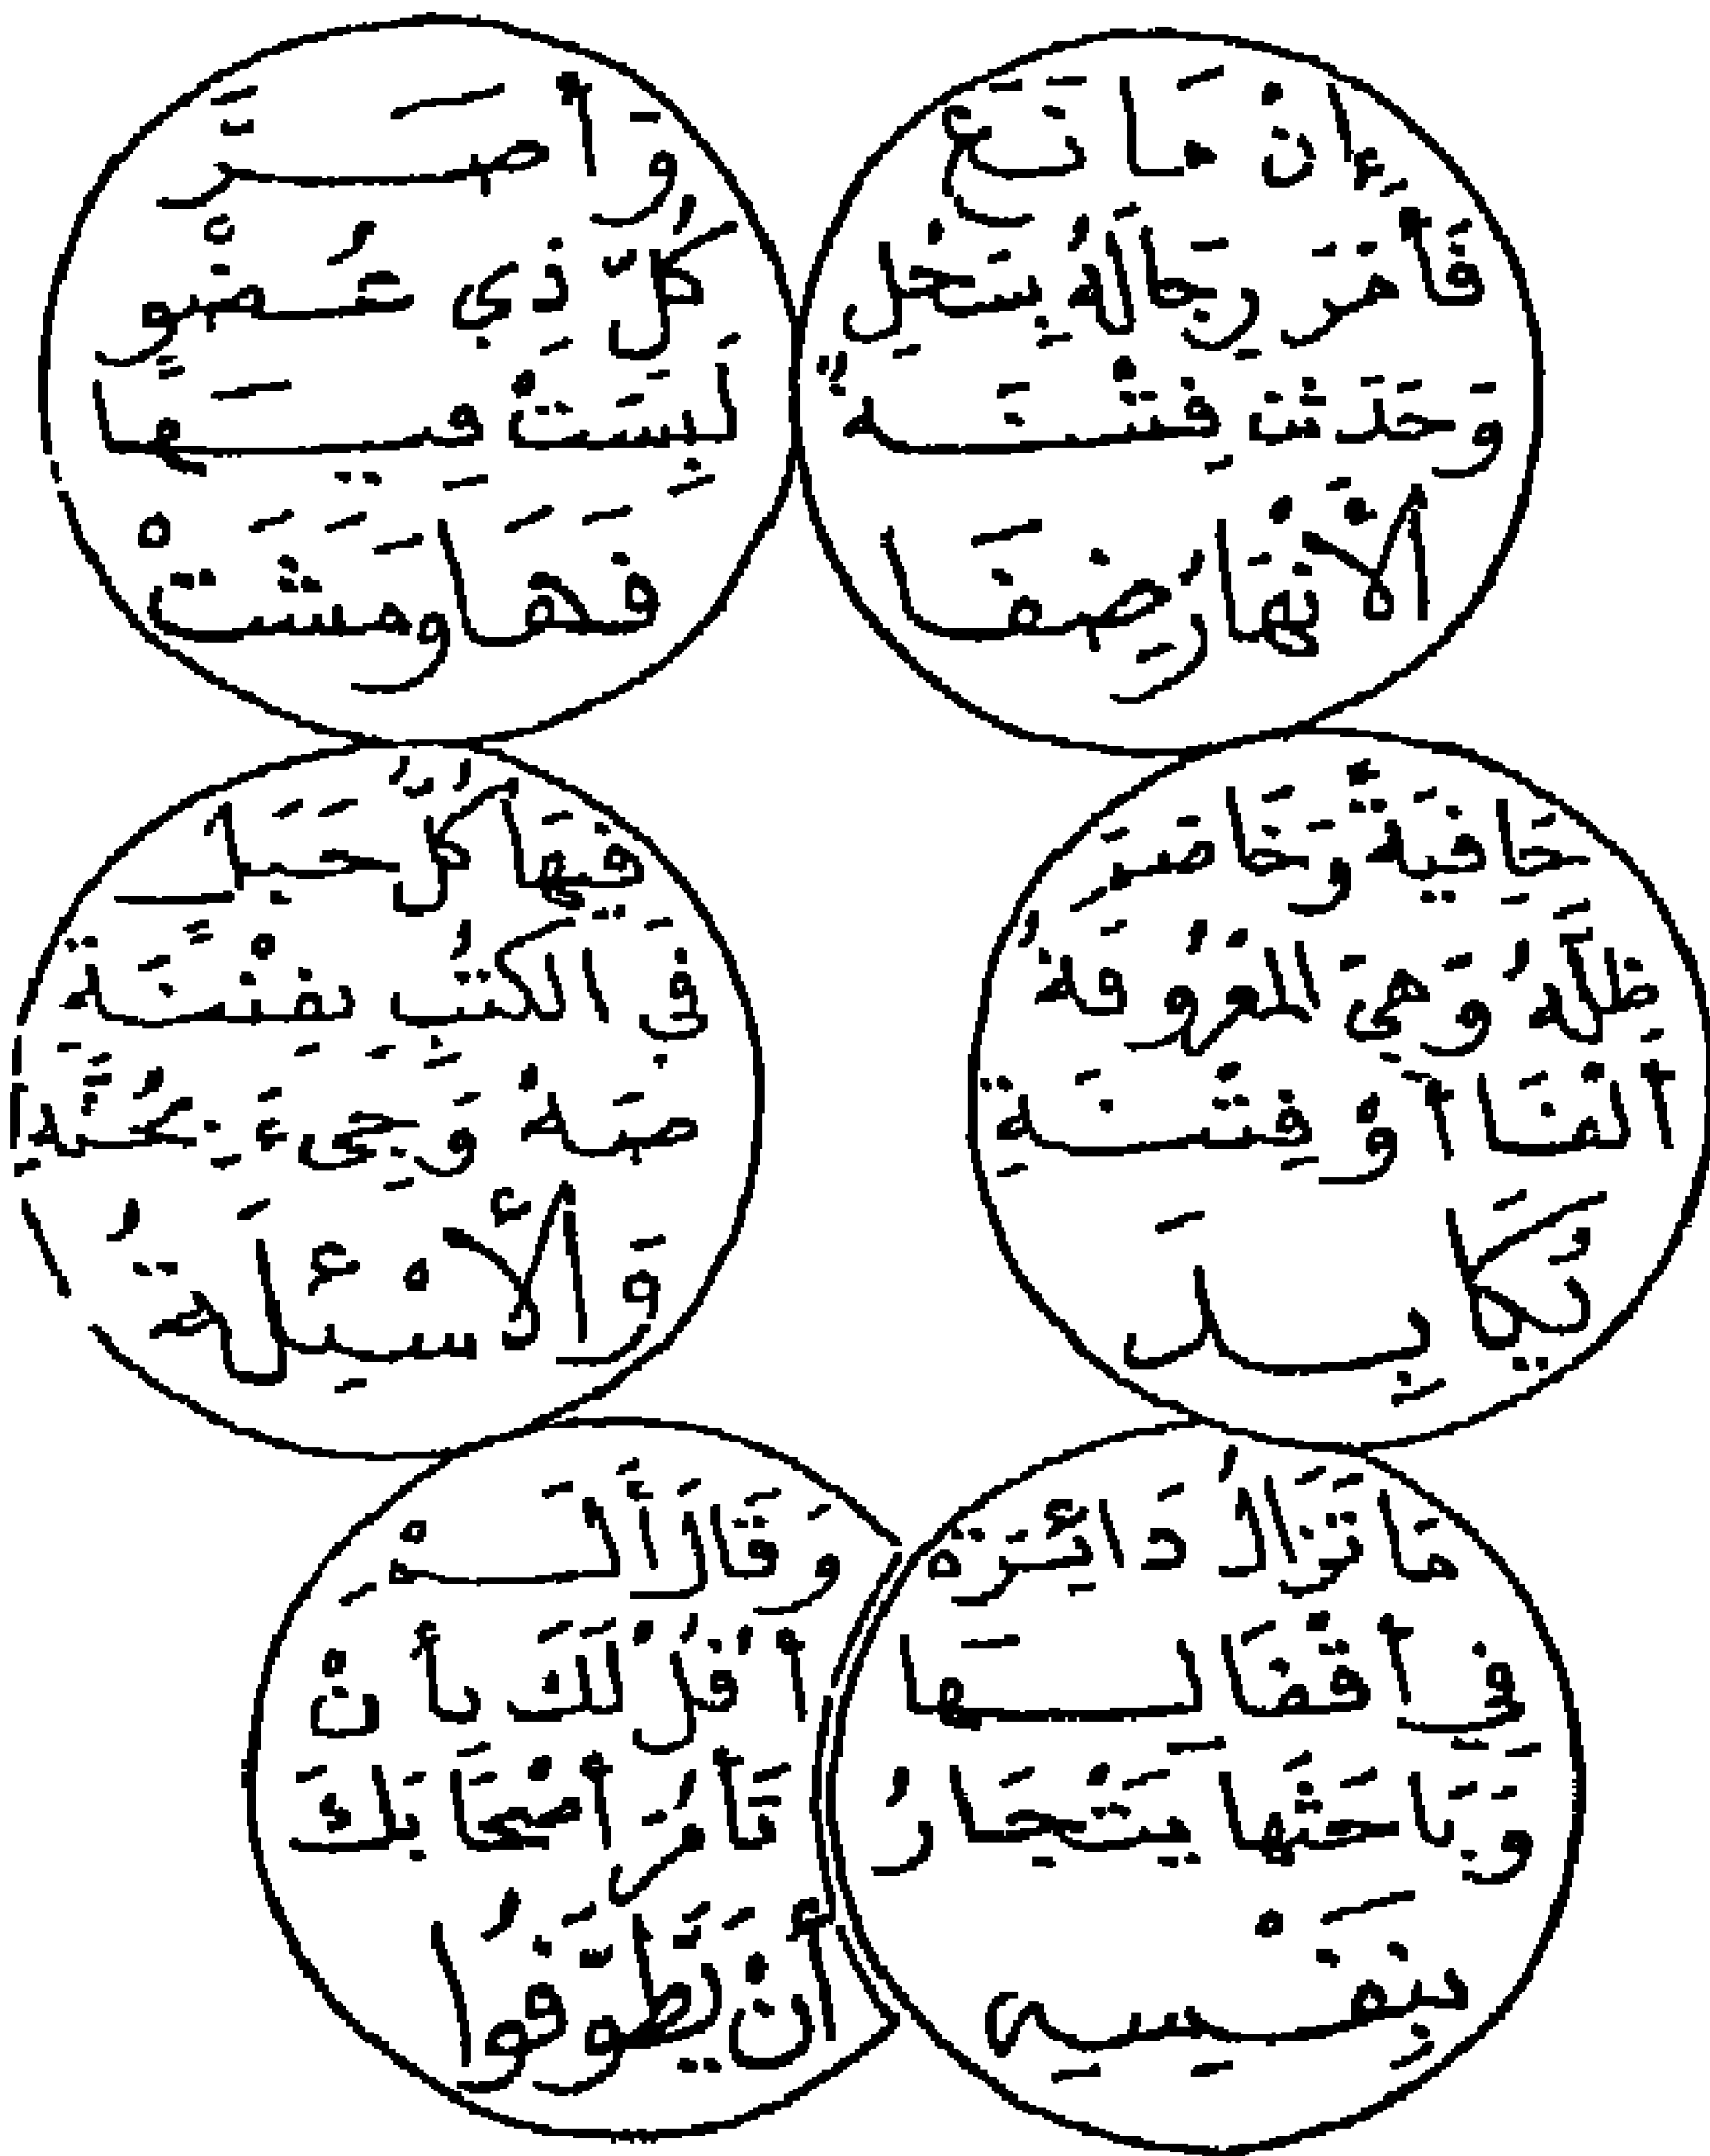 أَنْ مَا نَعَ
فَأَمَرَ رِجَالَهُ بِسَحْلِ
وَحَدَثْتْ فِتْنَةٌ
الْأَنْهَارُ ضِفَا
وَأَصَرَّ
كُلِّ ذِي عُضْوٍ
لَبِسَتْ فِيهَا
فَهَا وَمَشَتْ
حَافِيَةً وَخَاصَرَ
ظِلَّهُ وَهِيَ الْمَعْرُوفَةُ
الْفَنَا أَوْ فِتْنَةِ
يُكَابِدَ
فِيهَا كُلُّ حَبَا
فِي الْكُتُبِ بِفِتْنَةِ
وَجِيءَ
وَالْأَسْئِلَةُ
مَا تَزَالُ دَائِرَةْ
فِي أَقْفَالِهَا
وَبَاحَثَهَا يَتَّجَارُ
بِنَفْسِهِ
وَقَالَ أَلَمْ
أَقُلْ لَكَ بِأَنْ
تَأْمُرَ أَصْحَابَكَ
أَنْ يَطَّوَّفُوا